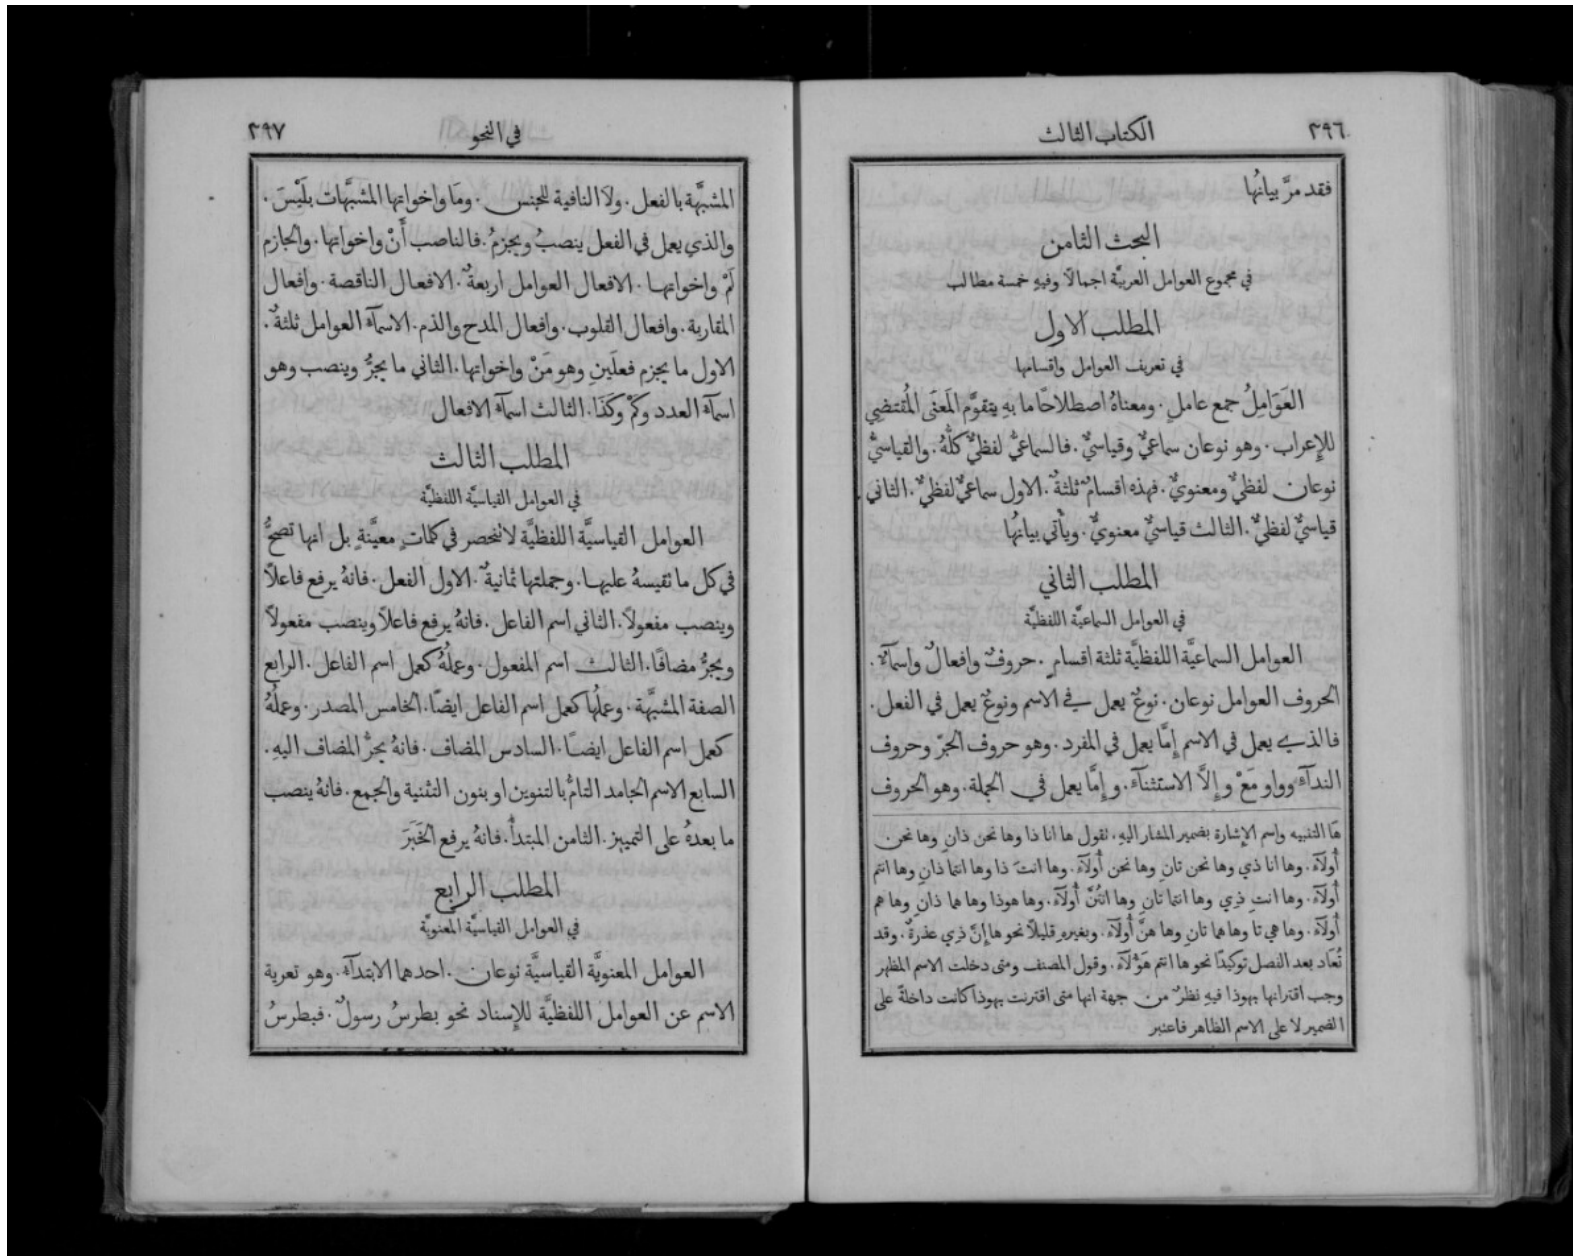 ٣٩٦
الكتاب الثالث
فقد مرَّ بيانُها
البحث الثامن
في مجموع العوامل العربيَّة اجمالاً وفيهِ خمسة مطالب
المطلب الاول
في تعريف العوامل واقسامها
العَوَامِلُ جمع عاملٍ. ومعناهُ اصطلاحًا ما بهِ يتقوَّم المَعنَى المُقتضِي
للإعراب. وهو نوعان سماعيٌّ وقياسيٌّ. فالسماعيُّ لفظيٌّ كلُّهُ. والقياسيُّ
نوعان لفظيٌّ ومعنويٌّ. فهذه اقسامٌ ثلثةٌ. الاول سماعيٌّ لفظيٌّ. الثاني
قياسيٌّ لفظيٌّ. الثالث قياسيٌّ معنويٌّ. ويأتي بيانُها
المطلب الثاني
في العوامل السماعيَّة اللفظيَّة
العوامل السماعيَّة اللفظيَّة ثلثة اقسامٍ. حروفٌ وافعالٌ واسمآءٌ.
الحروف العوامل نوعان. نوعٌ يعمل في الاسم ونوعٌ يعمل في الفعل.
فالذي يعمل في الاسم إمَّا يعمل في المفرد. وهو حروف الجرّ وحروف
الندآء وواو مَعْ وإلَّا الاستثنآء. وإمَّا يعمل في الجملة. وهو الحروف
هَا التنبيه واسم الإشارة بضمير المشار اليهِ. نقول ها انا ذا وها نحن ذانِ وها نحن
أُولآءِ. وها انا ذي وها نحن تانِ وها نحن أُولآءِ. وها انتَ ذا وها انتما ذانِ وها انتم
أُولآءِ. وها انتِ ذي وها انتما تانِ وها انتُنَّ أُولآءِ. وها هوذا وها هما ذانِ وها هم
أُولآءِ. وها هي تا وها هما تانِ وها هنَّ أُولآءِ. وبغيرهِ قليلاً نحو ها إنَّ ذي عذرةٌ. وقد
تُعَاد بعد الفصل توكيدًا نحو ها انتم هَؤلآءِ. وقول المصنف ومتى دخلت الاسم المظهر
وجب اقترانها بهوذا فيهِ نظرٌ من جهة انها متى اقترنت بهوذا كانت داخلةً على
الضمير لا على الاسم الظاهر فاعتبر
في النحو
٣٩٧
المشبَّهة بالفعل. ولاَ النافية للجنس. ومَا واخواتها المشبَّهات بلَيْسَ.
والذي يعمل في الفعل ينصبُ ويجزمُ. فالناصب أَنْ واخواتها. والجازم
لَمْ واخواتها. الافعال العوامل اربعةٌ. الافعال الناقصة. وافعال
المقاربة. وافعال القلوب. وافعال المدح والذم. الاسمآء العوامل ثلثةٌ.
الاول ما يجزم فعلَينِ وهو مَنْ واخواتها. الثاني ما يجرُّ وينصب وهو
اسمآء العدد وكَمْ وكَذَا. الثالث اسمآء الافعال
المطلب الثالث
في العوامل القياسيَّة اللفظيَّة
العوامل القياسيَّة اللفظيَّة لا تنحصر في كلماتٍ معيَّنةٍ بل انها تصحُّ
في كل ما نقيسهُ عليها. وجملتها ثمانيةٌ. الاول الفعل. فانهُ يرفع فاعلاً
وينصب مفعولاً. الثاني اسم الفاعل. فانهُ يرفع فاعلاً وينصب مفعولاً
ويجرُّ مضافًا. الثالث اسم المفعول. وعملُهُ كعمل اسم الفاعل. الرابع
الصفة المشبَّهة. وعملُها كعمل اسم الفاعل ايضًا. الخامس المصدر. وعملُهُ
كعمل اسم الفاعل ايضًا. السادس المضاف. فانهُ يجرُّ المضاف اليهِ.
السابع الاسم الجامد التامُّ بالتنوين او بنون التثنية والجمع. فانهُ ينصب
ما بعدهُ على التمييز. الثامن المبتدأُ. فانهُ يرفع الخَبَرَ
المطلب الرابع
في العوامل القياسيَّة المعنويَّة
العوامل المعنويَّة القياسيَّة نوعان. احدهما الابتدآء. وهو تعرية
الاسم عن العوامل اللفظيَّة للإسناد نحو بطرسُ رسولٌ. فبطرسُ